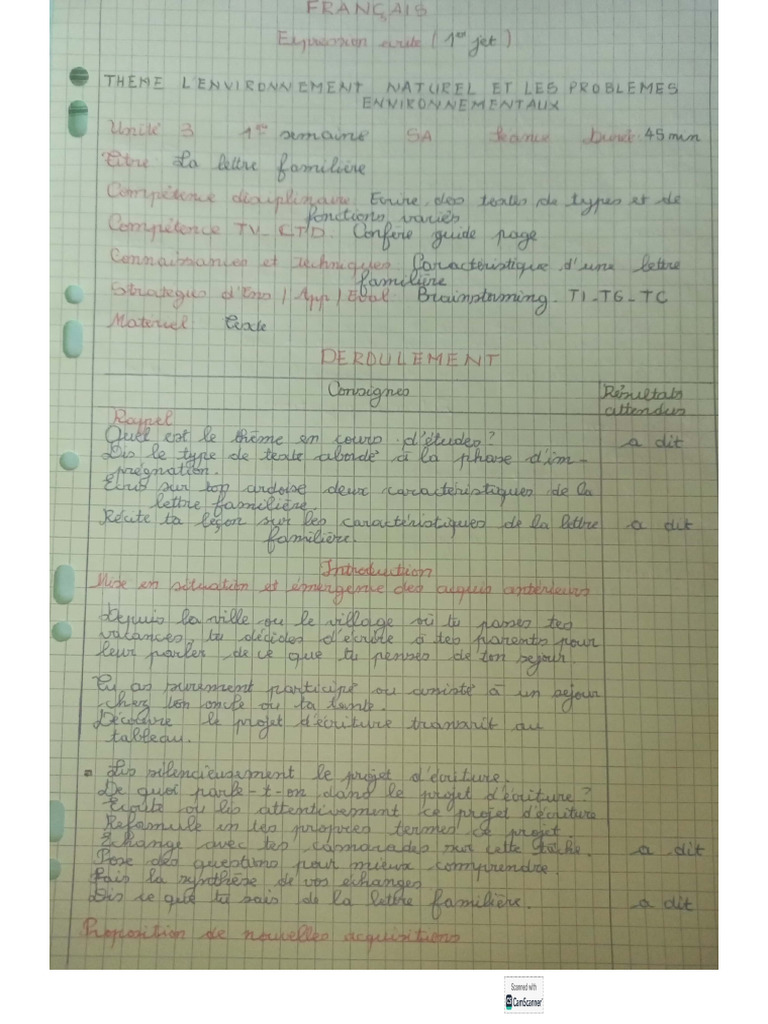 FRANÇAIS
Expression écrite (1er jet)
THEME L'ENVIRONNEMENT NATUREL ET LES PROBLEMES
ENVIRONNEMENTAUX
Unité 3 1re semaine SA Seance Durée: 45 min
Titre La lettre familière
Compétence disciplinaire Ecrire des textes de types et de
fonctions variés
Compétence TV_CTD. Confère guide page
Connaissances et techniques Caractéristique d'une lettre
familière
Strategies d'Ens / App / Eval Brainstorming - TI - TG - TC
Materiel texte
DEROULEMENT
Consignes Résultats
attendus
Rappel
Quel est le thème en cours d'études? a dit
Dis le type de texte abordé à la phase d'im-
prégnation.
Ecris sur ton ardoise deux caractéristiques de la
lettre familière
Récite ta leçon sur les caractéristiques de la lettre a dit
familière.
Introduction
Mise en situation et émergence des acquis antérieurs
Depuis la ville ou le village où tu passes tes
vacances, tu décides d'écrire à tes parents pour
leur parler de ce que tu penses de ton sejour.
Tu as surement participé ou assisté à un sejour
chez ton oncle ou ta tante.
Découvre le projet d'écriture transcrit au
tableau.
- Lis silencieusement le projet d'écriture.
De quoi parle-t-on dans le projet d'écriture?
Ecoute ou lis attentivement ce projet d'écriture
Reformule en tes propres termes ce projet.
Echange avec tes camarades sur cette tâche. a dit
Pose des questions pour mieux comprendre.
Fais la synthèse de vos échanges
Dis ce que tu sais de la lettre familière. a dit
Proposition de nouvelles acquisitions
Scanned with
CamScanner